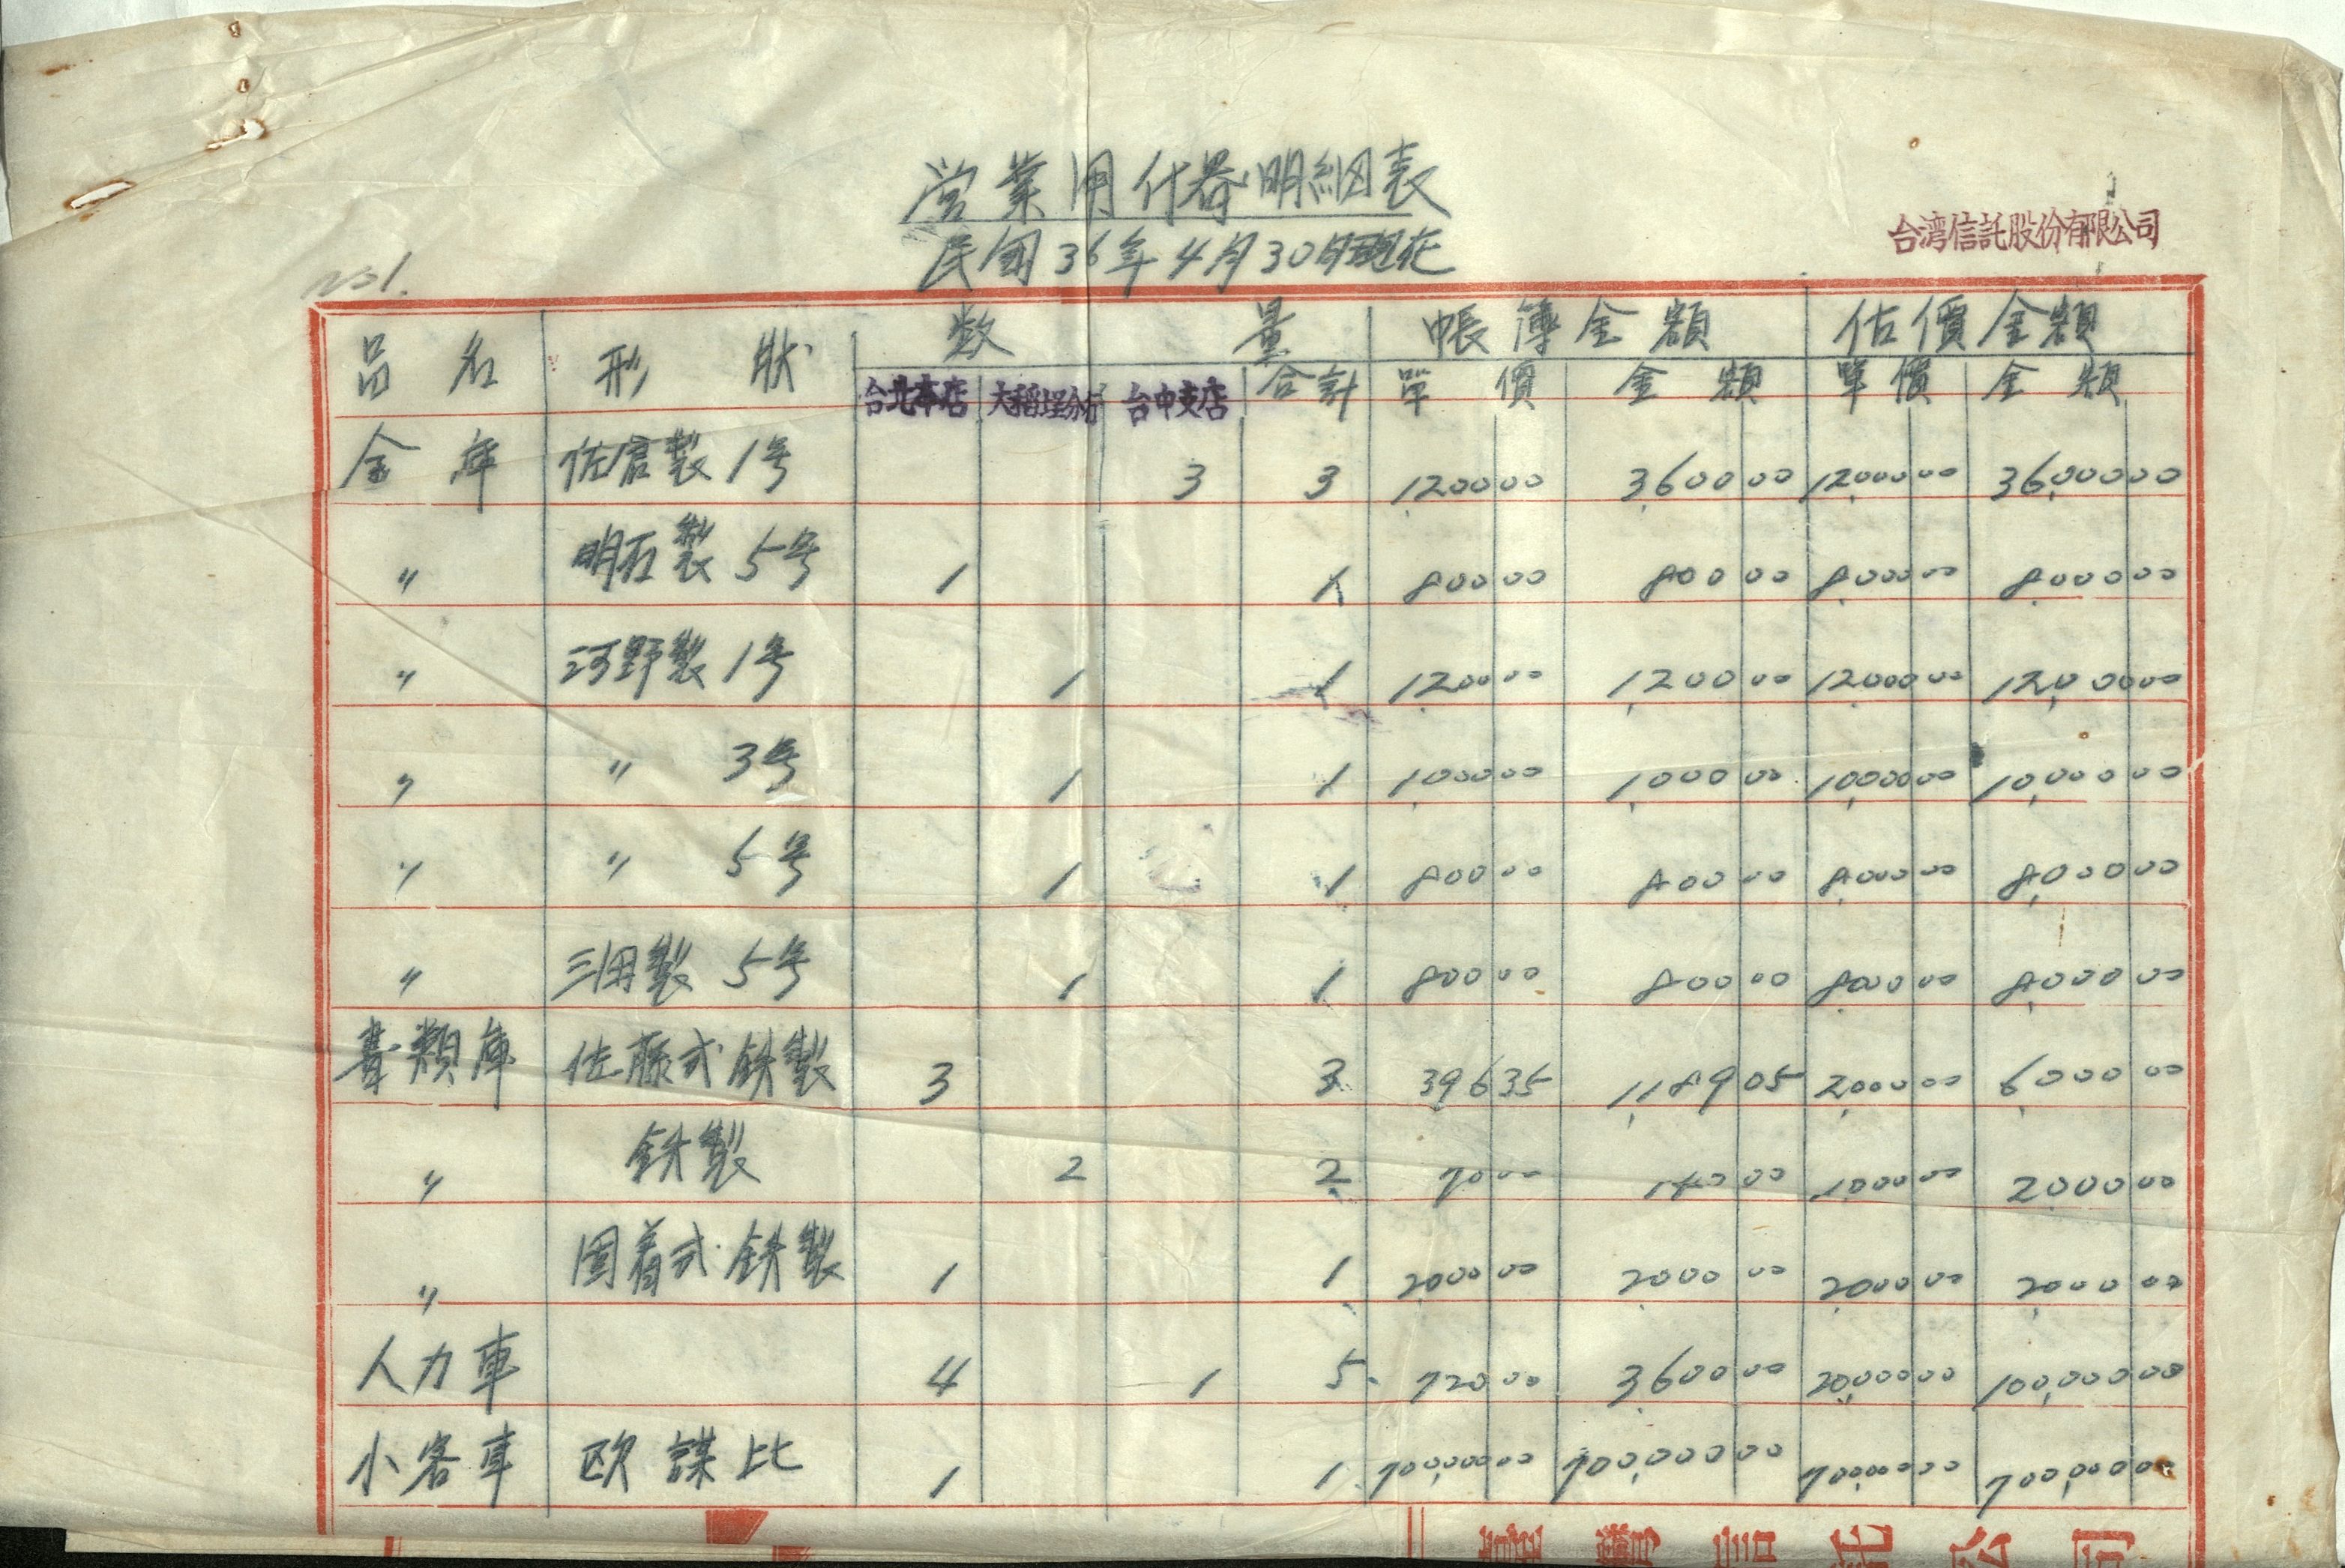 営業用什器明細表
民國36年4月30日現在
台湾信託股份有限公司
no1.
品名 形狀 数量 帳簿金額 估價金額
台北本店 大稲埕分店 台中支店 合計 單價 金額 單價 金額
金庫 佐信製 1号 3 3 1,200 00 3,600 00 12,000 00 36,000 00
〃 明石製 5号 1 1 800 00 800 00 8,000 00 8,000 00
〃 河野製 1号 1 1 1,200 00 1,200 00 12,000 00 12,000 00
〃 〃 3号 1 1 1,000 00 1,000 00 10,000 00 10,000 00
〃 〃 5号 1 1 800 00 800 00 8,000 00 8,000 00
〃 三田製 5号 1 1 800 00 800 00 8,000 00 8,000 00
書類庫 佐藤式鉄製 3 3 396 35 1,189 05 2,000 00 6,000 00
〃 鉄製 2 2 70 00 140 00 1,000 00 2,000 00
〃 固着式鉄製 1 1 2,000 00 2,000 00 2,000 00 2,000 00
人力車 4 1 5 720 00 3,600 00 20,000 00 100,000 00
小客車 欧謀比 1 1 700,000 00 700,000 00 700,000 00 700,000 00